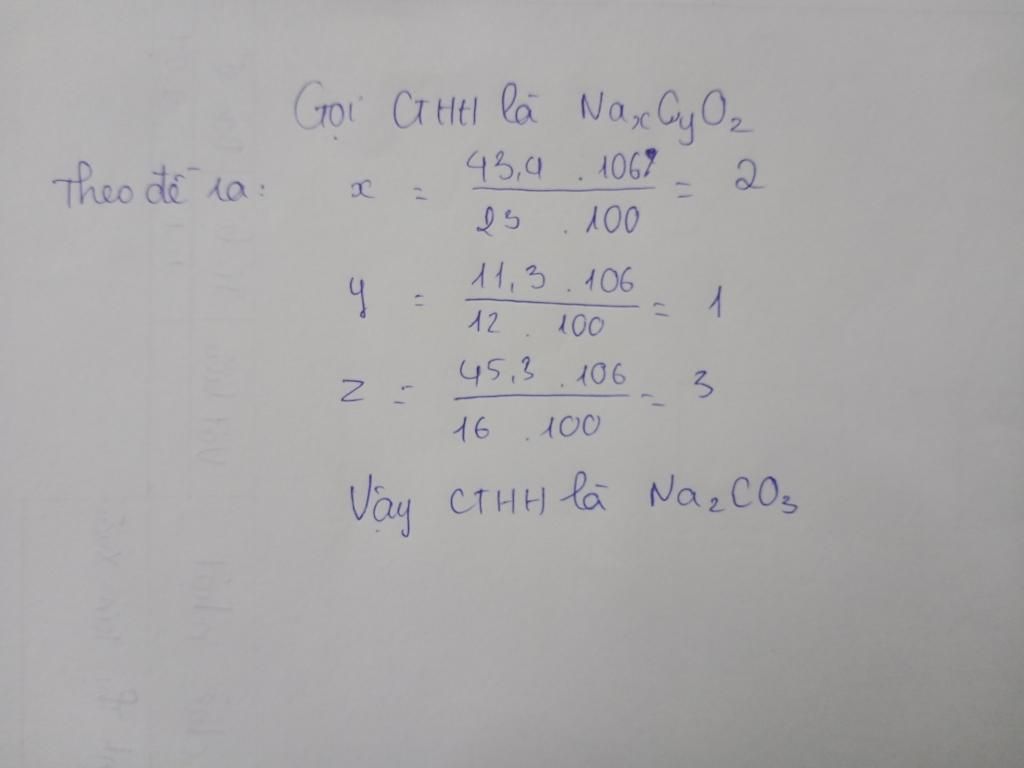 Gọi CTHH là NaxCyO2
Theo đề ra: x = 43,4 . 106 / 23 . 100 = 2
y = 11,3 . 106 / 12 . 100 = 1
z = 45,3 . 106 / 16 . 100 = 3
Vậy CTHH là Na2CO3